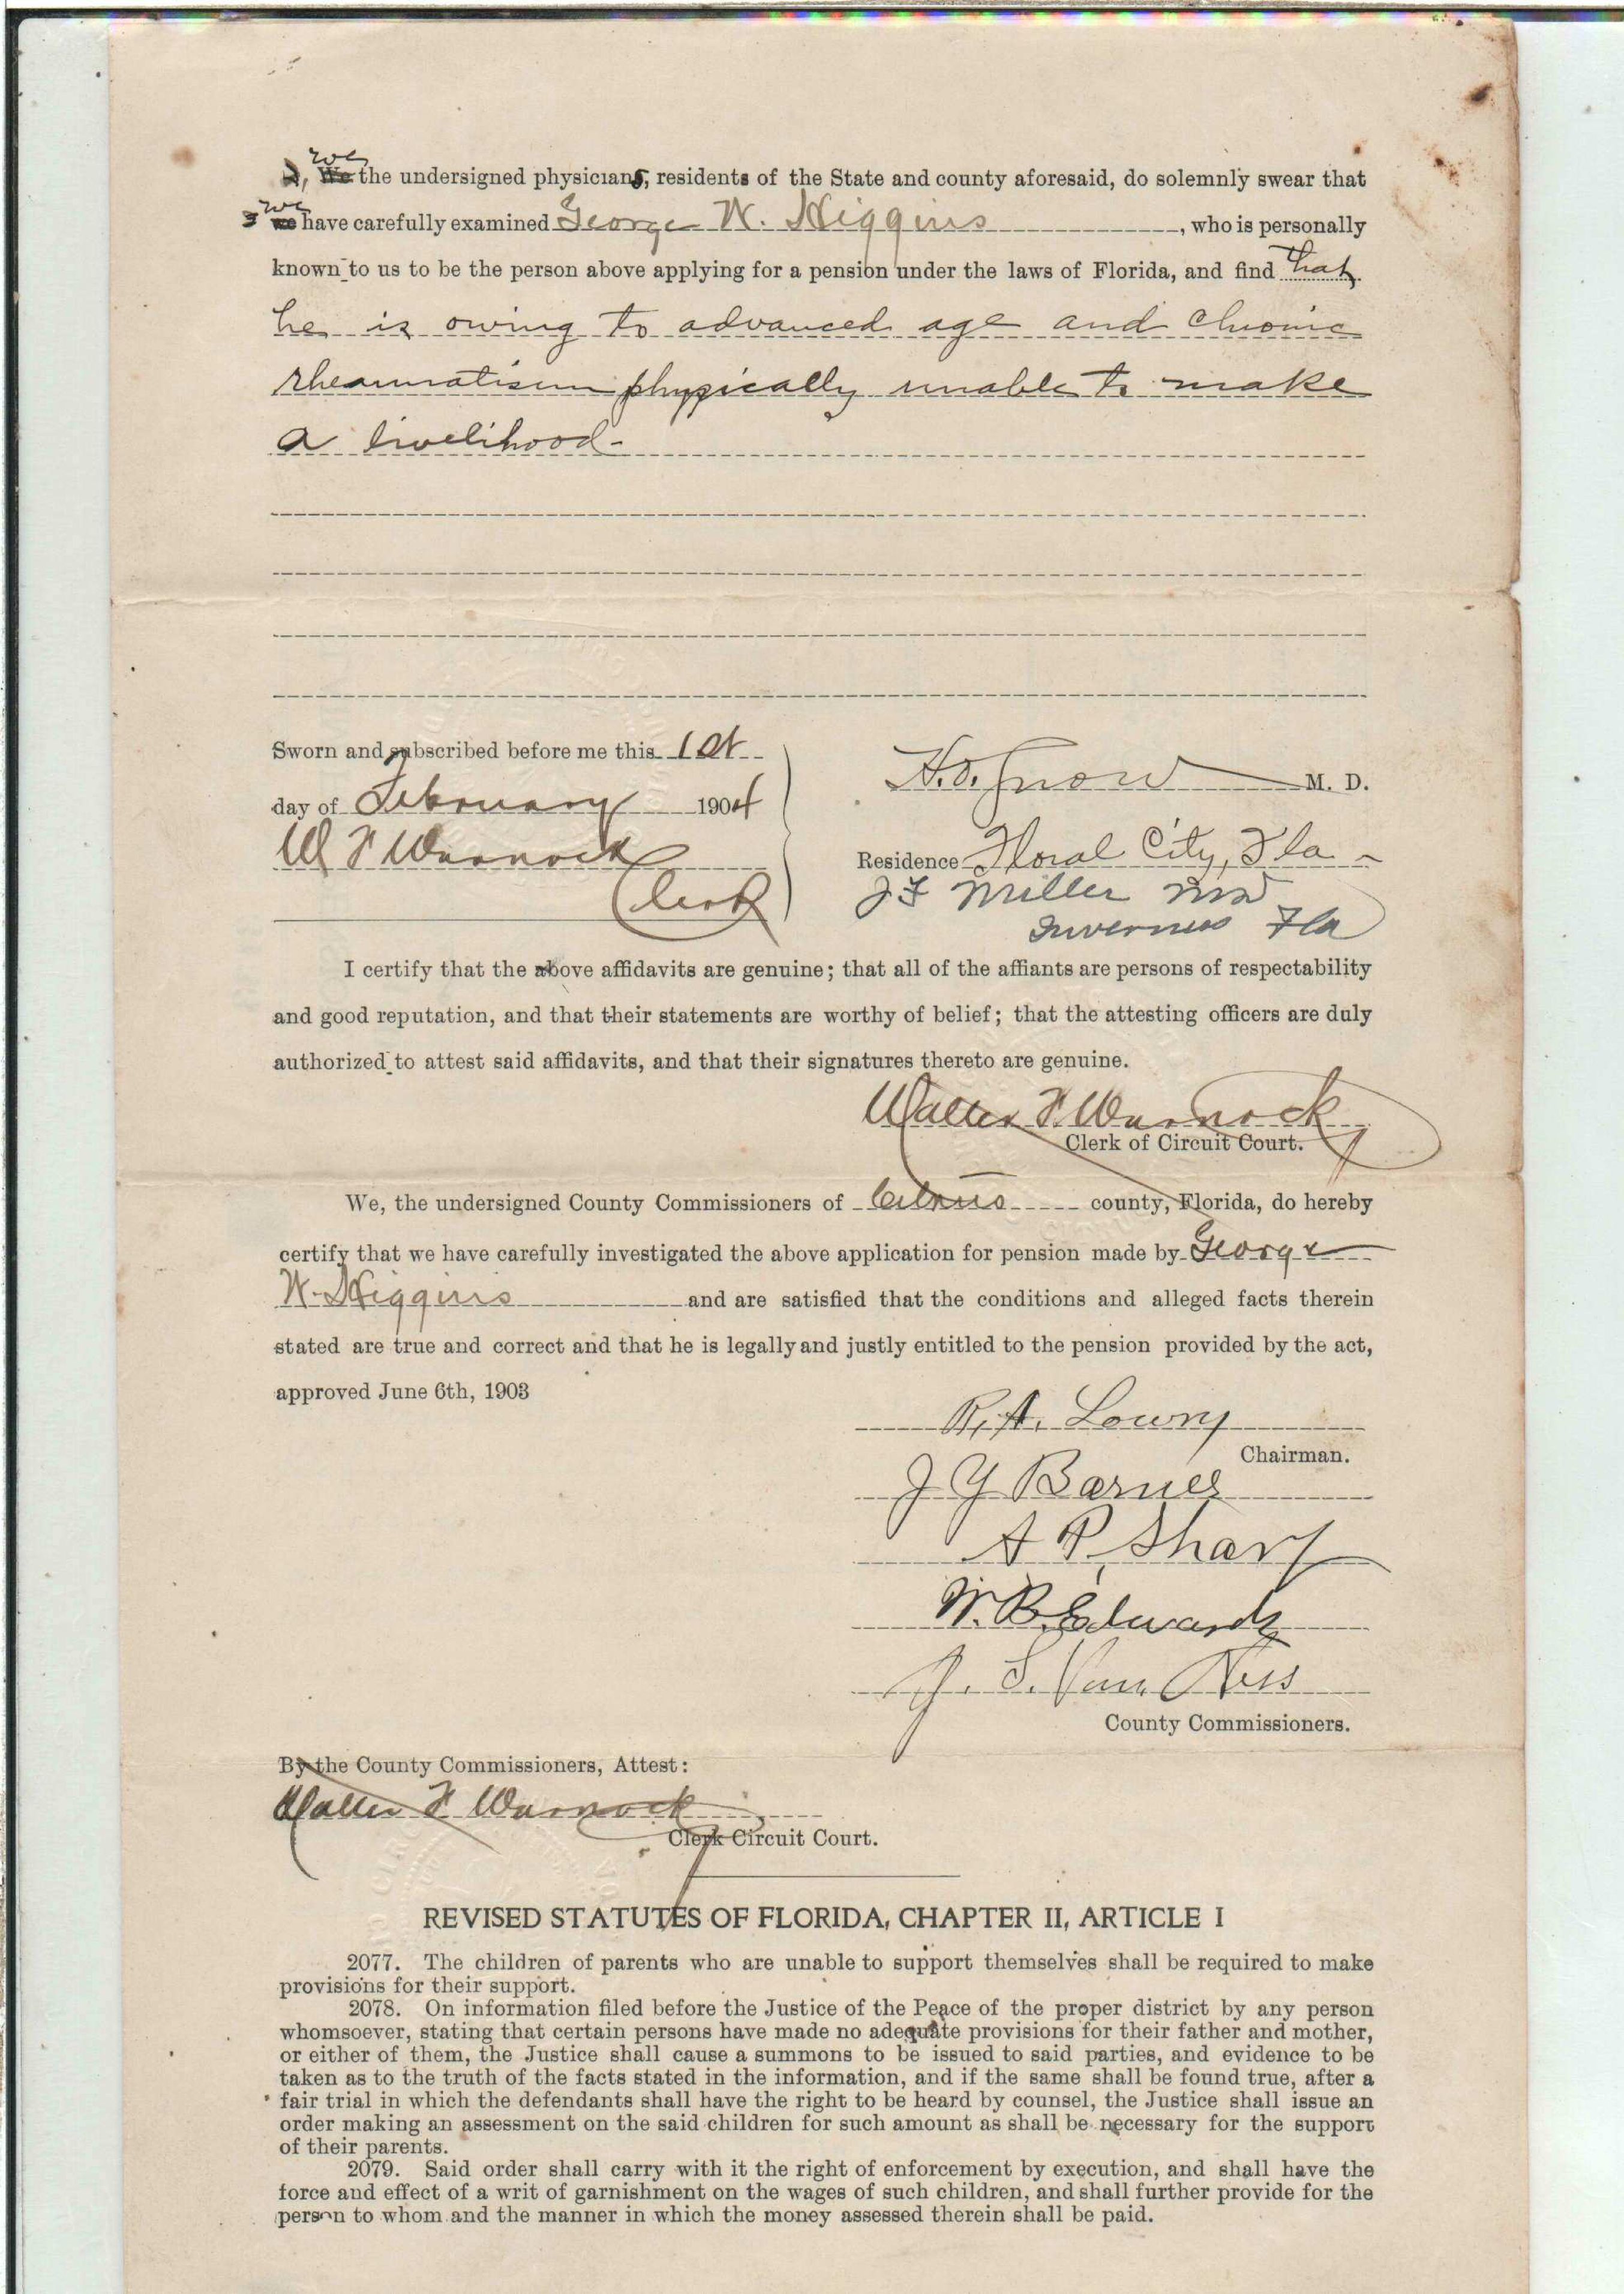 we
I, We the undersigned physicians, residents of the State and county aforesaid, do solemnly swear that
we
I we have carefully examined George W. Higgins, who is personally
known to us to be the person above applying for a pension under the laws of Florida, and find that
he is owing to advanced age and chronic
rheaumatism physically unable to make
a livelihood-
Sworn and subscribed before me this 1st
day of February 1904
W F Warnock
Clerk
H.O. Snow M. D.
Residence Floral City, Fla
J F Miller MD
Inverness Fla
I certify that the above affidavits are genuine; that all of the affiants are persons of respectability
and good reputation, and that their statements are worthy of belief; that the attesting officers are duly
authorized to attest said affidavits, and that their signatures thereto are genuine.
Walter F. Warnock
Clerk of Circuit Court.
We, the undersigned County Commissioners of Citrus county, Florida, do hereby
certify that we have carefully investigated the above application for pension made by George
W. Higgins and are satisfied that the conditions and alleged facts therein
stated are true and correct and that he is legally and justly entitled to the pension provided by the act,
approved June 6th, 1903
R. A. Lowry
Chairman.
J Y Barnes
A P. Sharp
W. B. Edwards
J. S. Van Ness
County Commissioners.
By the County Commissioners, Attest:
Walter F Warnock
Clerk Circuit Court.
REVISED STATUTES OF FLORIDA, CHAPTER II, ARTICLE I
2077. The children of parents who are unable to support themselves shall be required to make
provisions for their support.
2078. On information filed before the Justice of the Peace of the proper district by any person
whomsoever, stating that certain persons have made no adequate provisions for their father and mother,
or either of them, the Justice shall cause a summons to be issued to said parties, and evidence to be
taken as to the truth of the facts stated in the information, and if the same shall be found true, after a
fair trial in which the defendants shall have the right to be heard by counsel, the Justice shall issue an
order making an assessment on the said children for such amount as shall be necessary for the support
of their parents.
2079. Said order shall carry with it the right of enforcement by execution, and shall have the
force and effect of a writ of garnishment on the wages of such children, and shall further provide for the
person to whom and the manner in which the money assessed therein shall be paid.